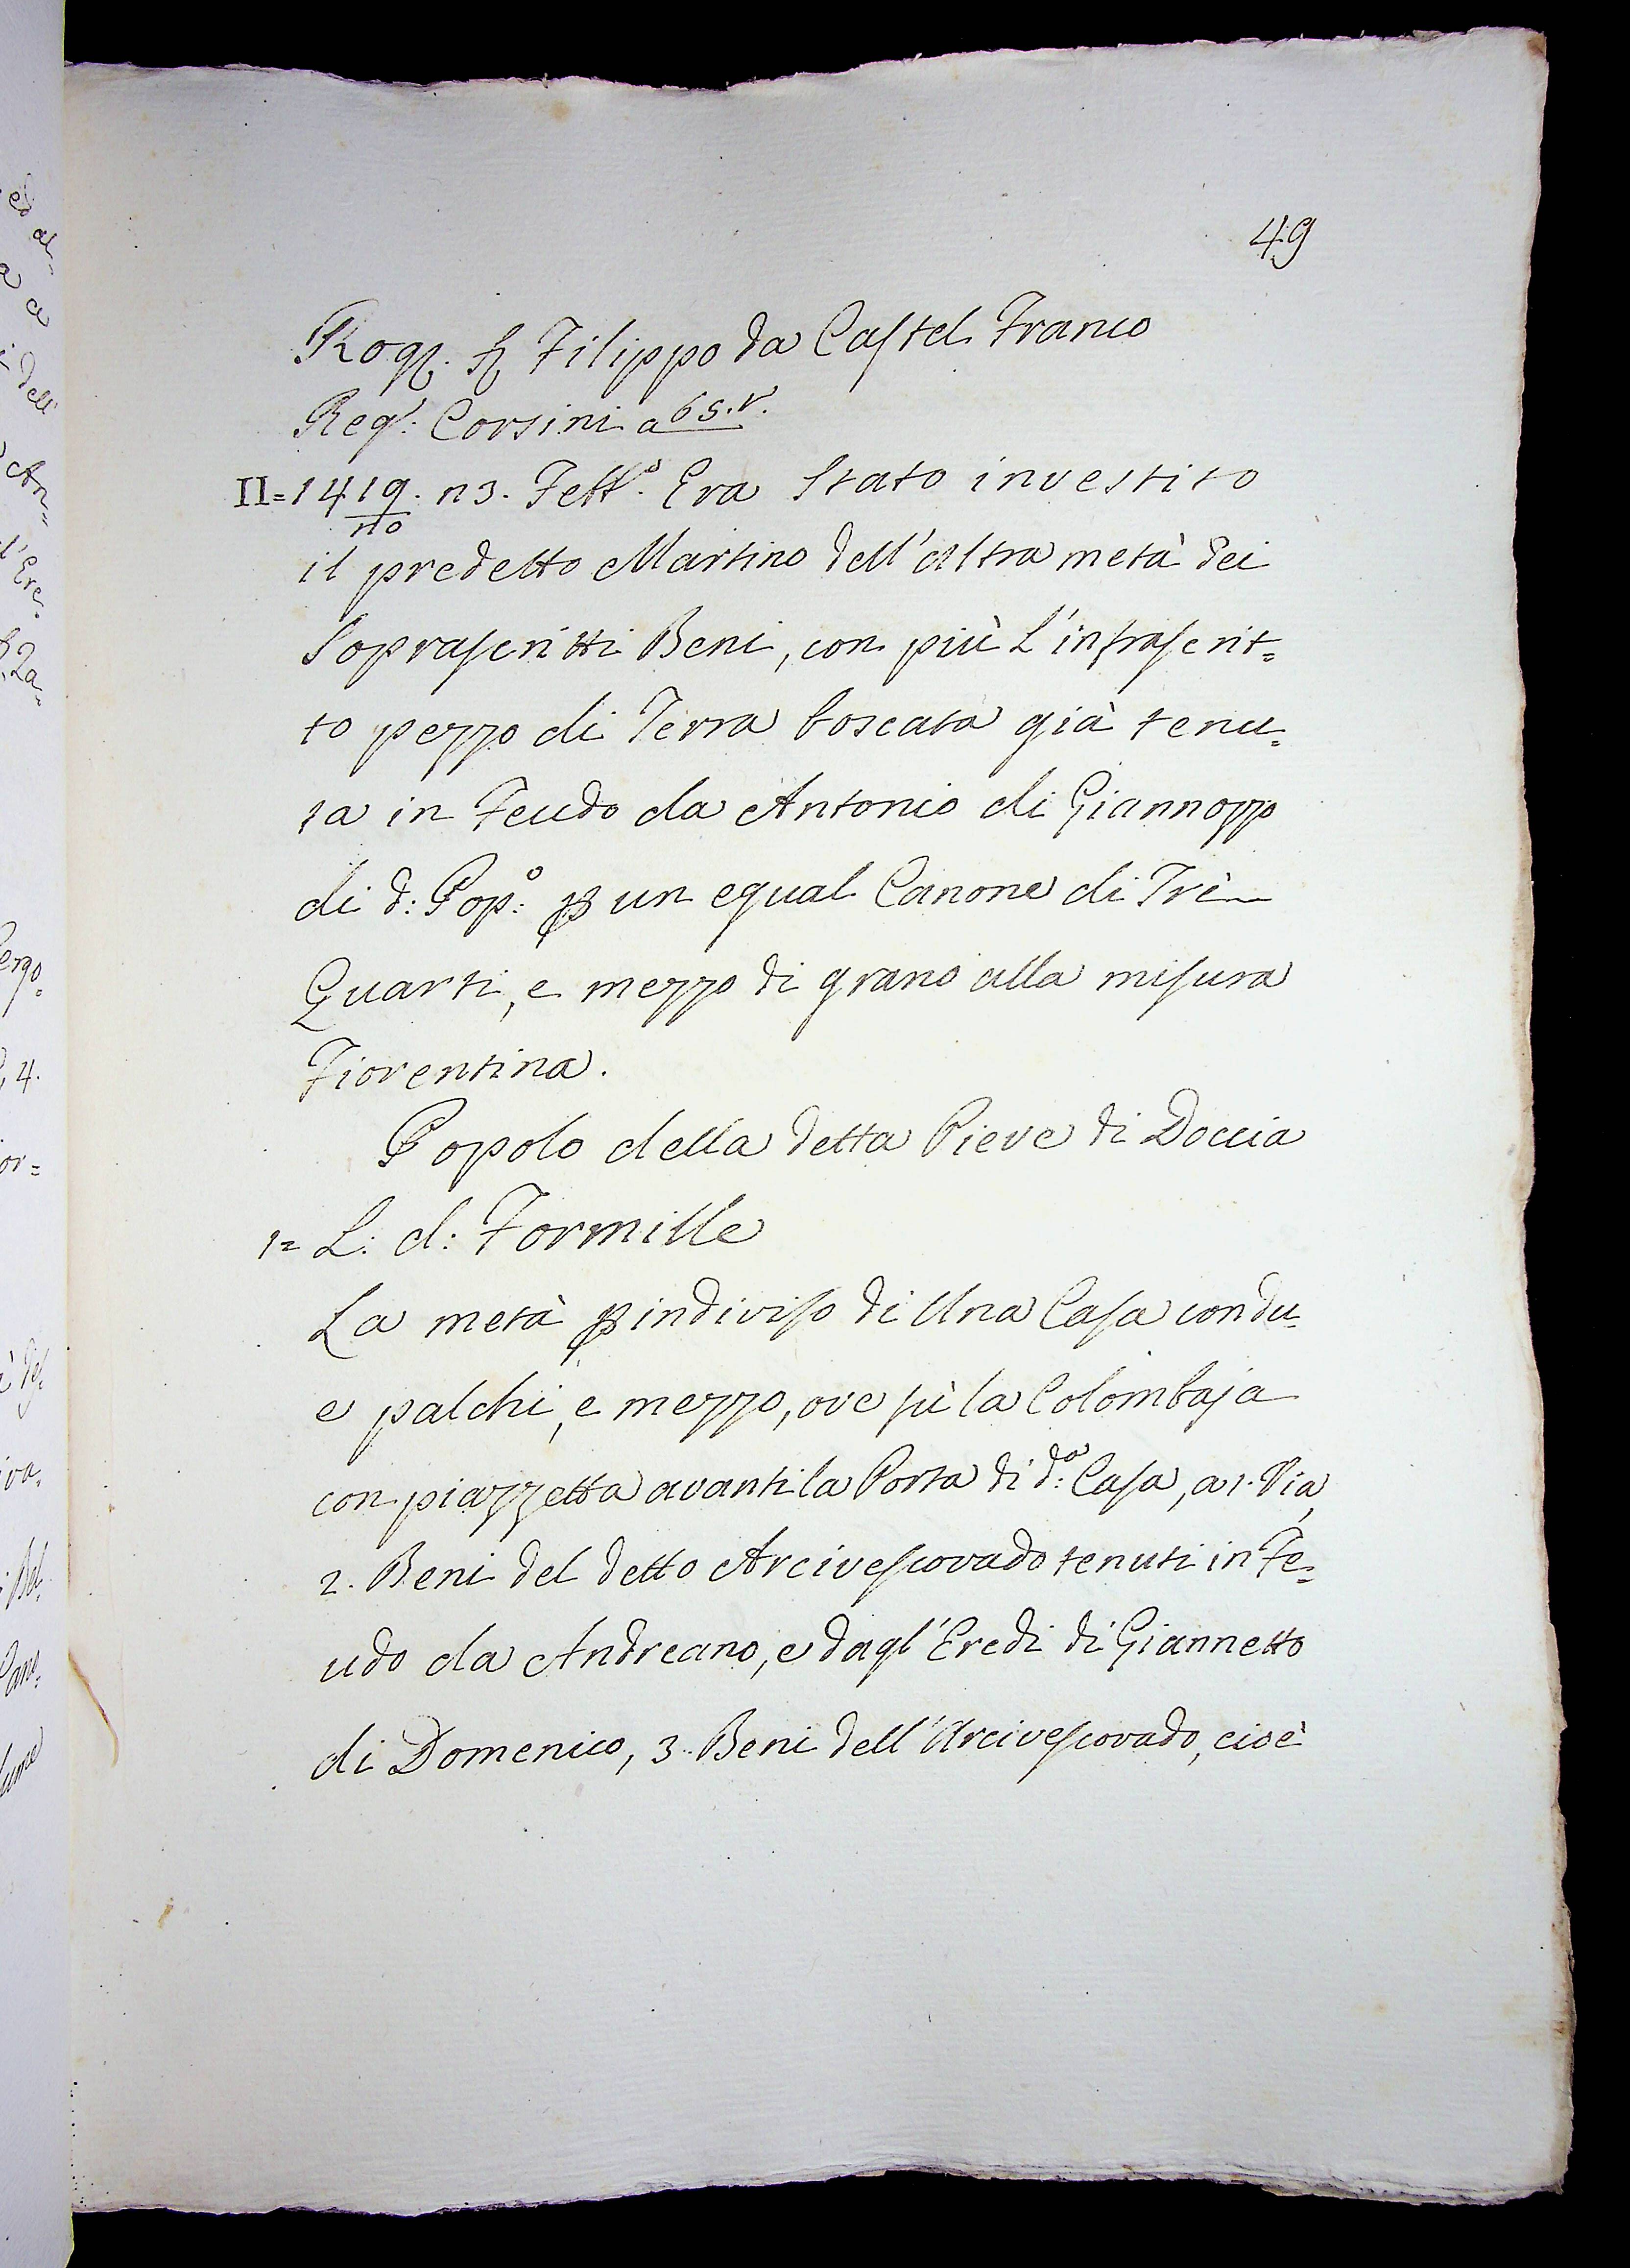 49
Rog. Filippo da Castel Franco
Reg.º: Corsini a 65.v.
II=1419. n3. Febb.º Era Stato investito
no
il predetto Martino dell'altra metà dei
Soprascritti Beni, con più l'infrascrit=
to pezzo di Terra boscata già tenu=
ta in Feudo da Antonio di Giannozzo
di d: Pop:º un equal Canone di Trè
Quarti, e mezzo di grano alla misura
Fiorentina.
Popolo della detta Pieve di Doccia
1= L: d: Formille
La metà p indiviso di Una Casa con du=
e palchi, e mezzo, ove fù la Colombaja
con piazzetta avanti la Porta di d:ª Casa, a 1. Via,
2. Beni del detto Arcivescovado tenuti in Fe=
udo da Andreano, e dagl'Eredi di Giannetto
di Domenico, 3. Beni dell'Arcivescovado, cioè